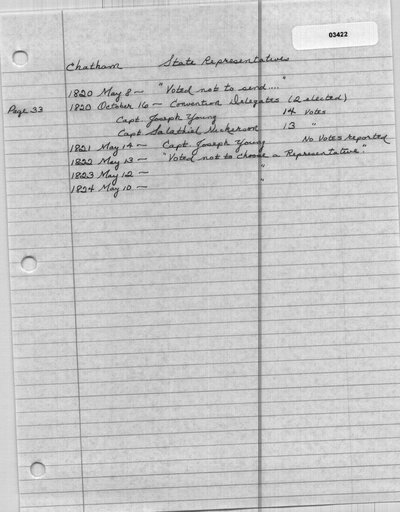 03422
Chatham State Representatives
1820 May 8 — "Voted not to send...."
Page 33 1820 October 16 — Convention Delegates (2 elected)
Capt. Joseph Young 14 Votes
Capt. Salathiel Nickerson 13 "
1821 May 14 — Capt. Joseph Young No Votes reported
1822 May 13 — "Voted not to choose a Representative".
1823 May 12 — "
1824 May 10 — "